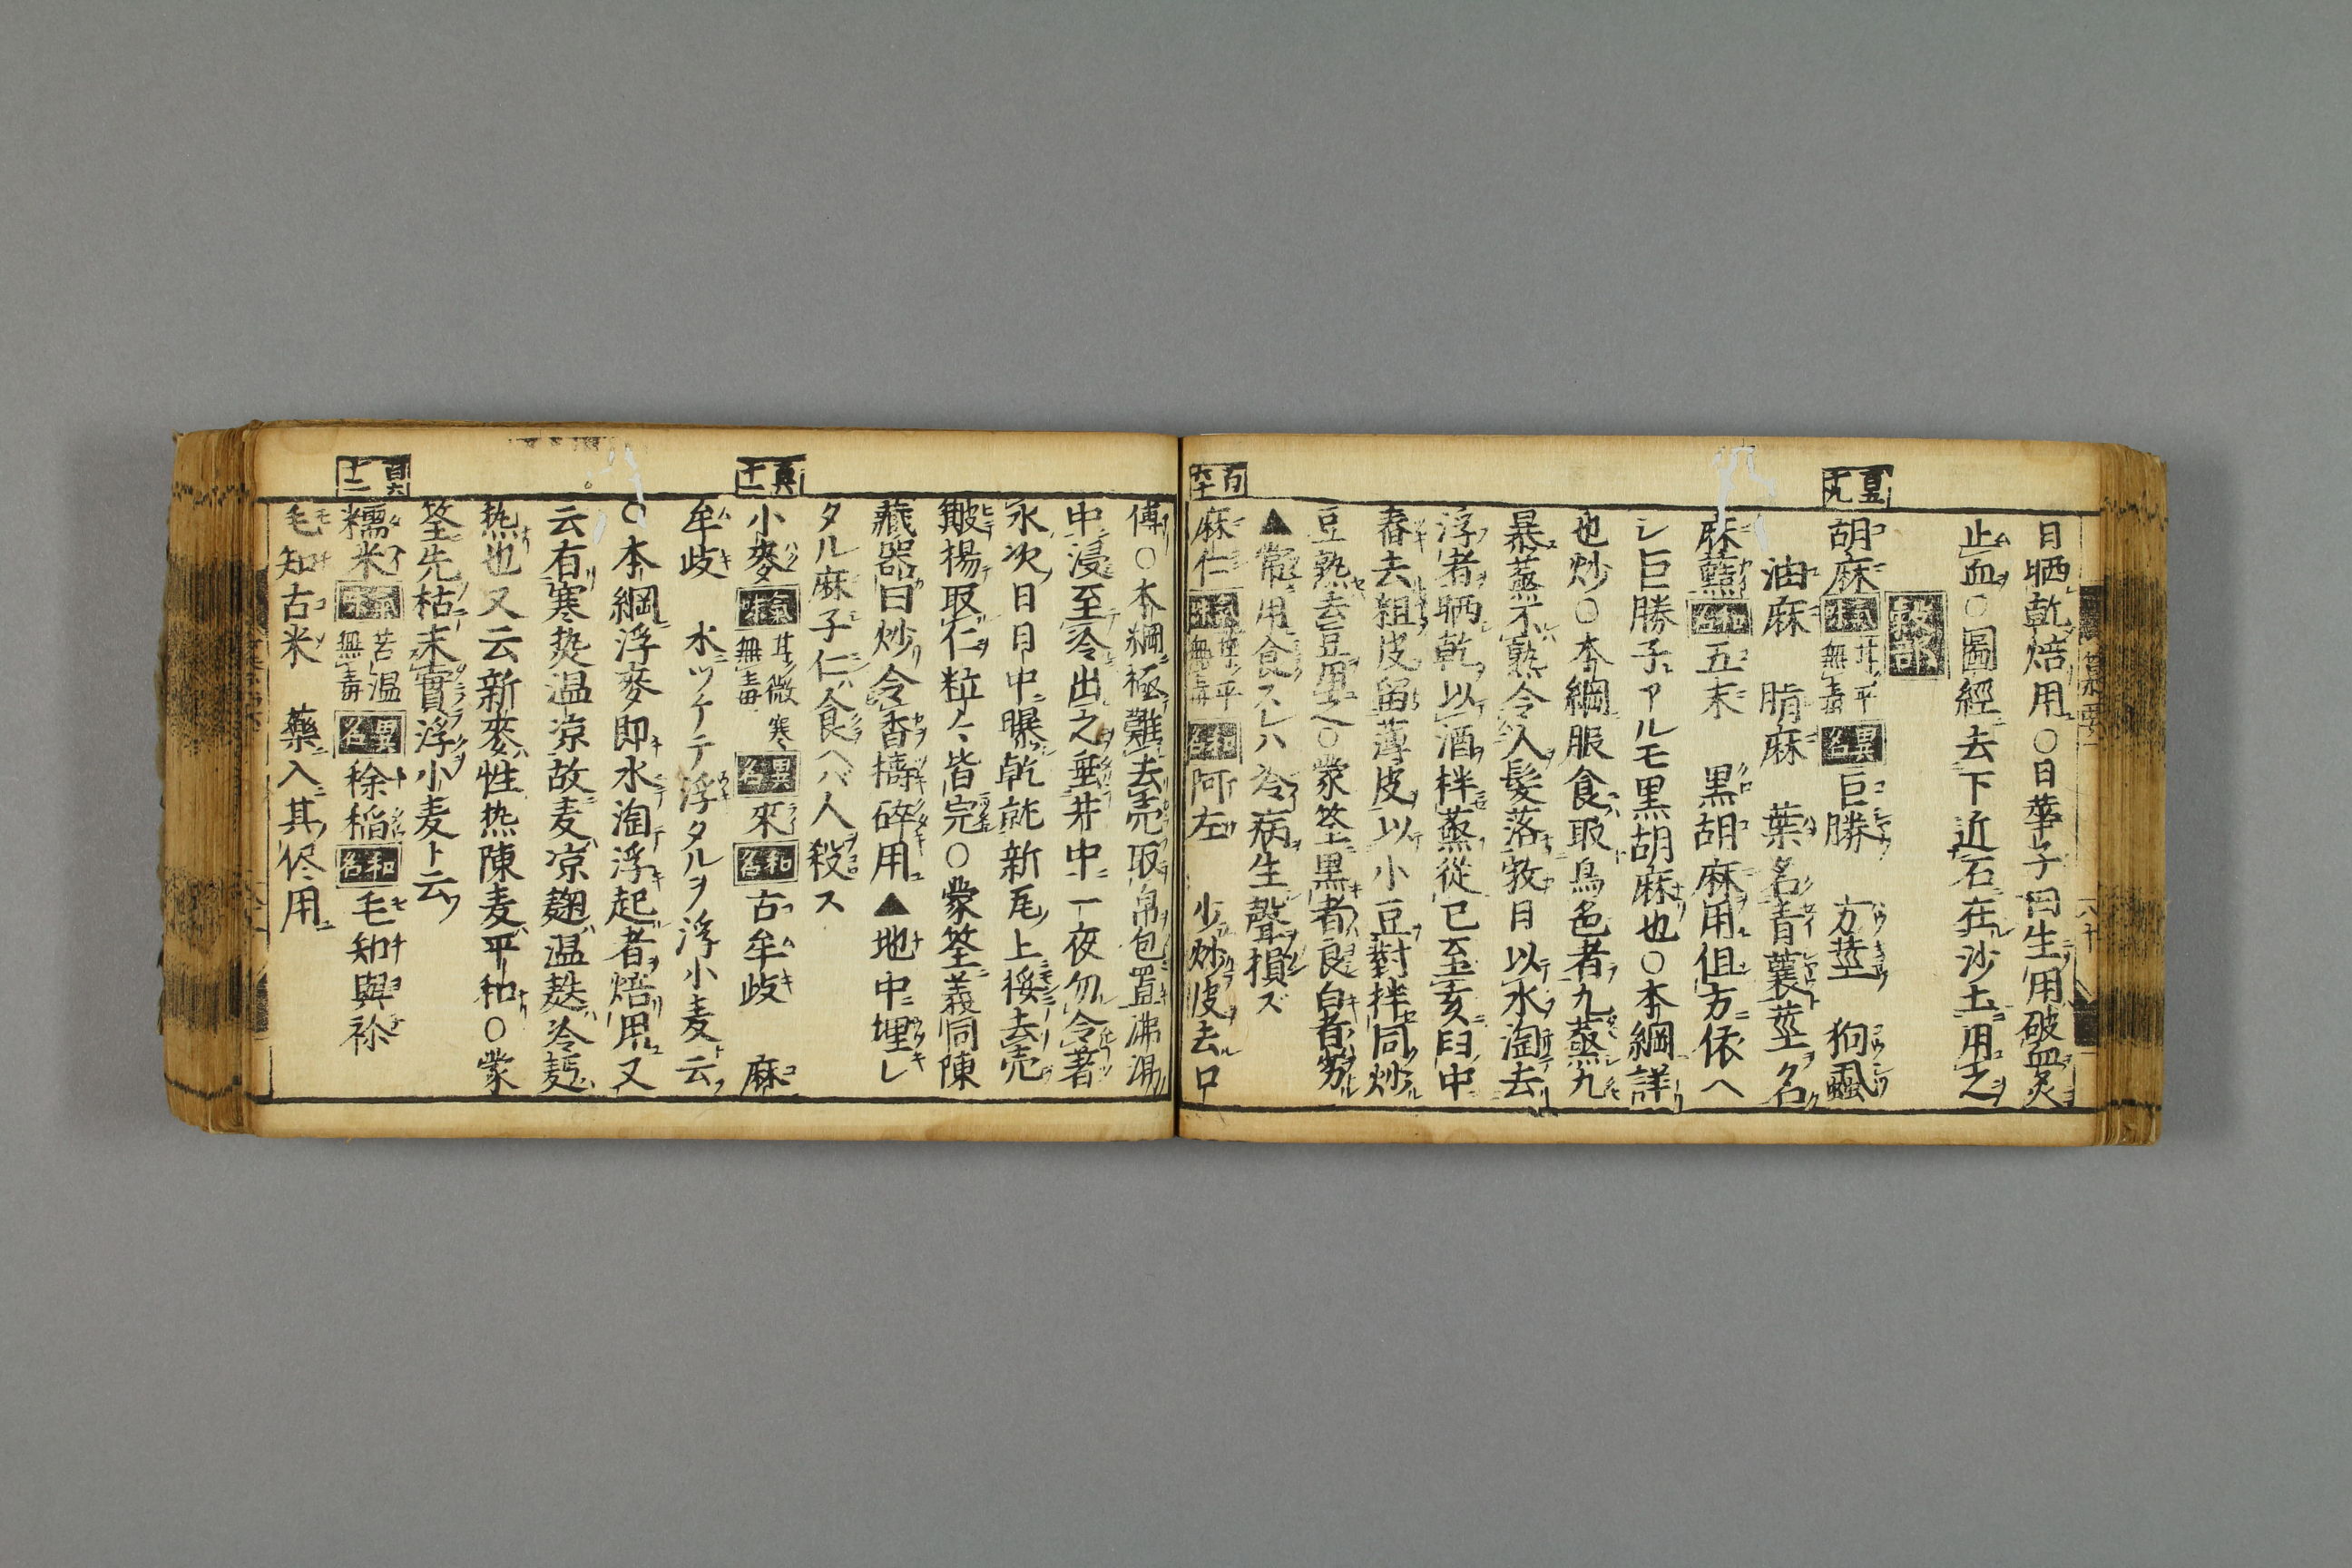 日晒乾焙用〇日華子曰生用破血炙
止血〇圖經去下近石在沙土用之
穀部
百五十九
胡麻 氣味 甘平無毒 異名 巨勝 方莖 狗蝨
油麻 脂麻 葉名青蘘莖名
麻藍 和名 五末 黒胡麻用但方依ヘ
シ巨勝子アルモ黒胡麻也〇本綱詳
也炒〇本綱服食取烏色者九蒸九
暴蒸不熟令人髮落
浮者晒乾以酒拌蒸從巳至亥臼中
舂去粗皮留薄皮以小豆對拌同炒
豆熟去豆用之〇蒙筌黒者良白者劣
▲常用食スレハ冷病生聲損ズ
百六十
麻仁 氣味 甘平無毒 和名 阿左 少炒皮去口
傳〇本綱極難去売取帛包置沸湯
中浸至冷出之垂井中一夜勿令著
水次日日中曝乾就新瓦上挼去売
簸揚取仁粒々皆完〇蒙筌義同陳
藏器曰炒令香擣碎用▲地中埋レ
タル麻子仁ハ食ヘバ人殺ス
百六十一
小麥 氣味 甘微寒無毒 異名 來 和名 古牟岐 麻
牟岐 水ツケテテ浮タルヲ浮小麦ト云フ
〇本綱浮麥即水淘浮起者焙用又
云有寒热温凉故麦凉麹温麩冷麪
热也又云新麥性热陳麦平和〇蒙
筌先枯未實浮小麦ト云フ
百六十二
糯米 氣味 苦温無毒 異名 稌稲 和名 毛知與祢
毛知古米 藥入其侭用